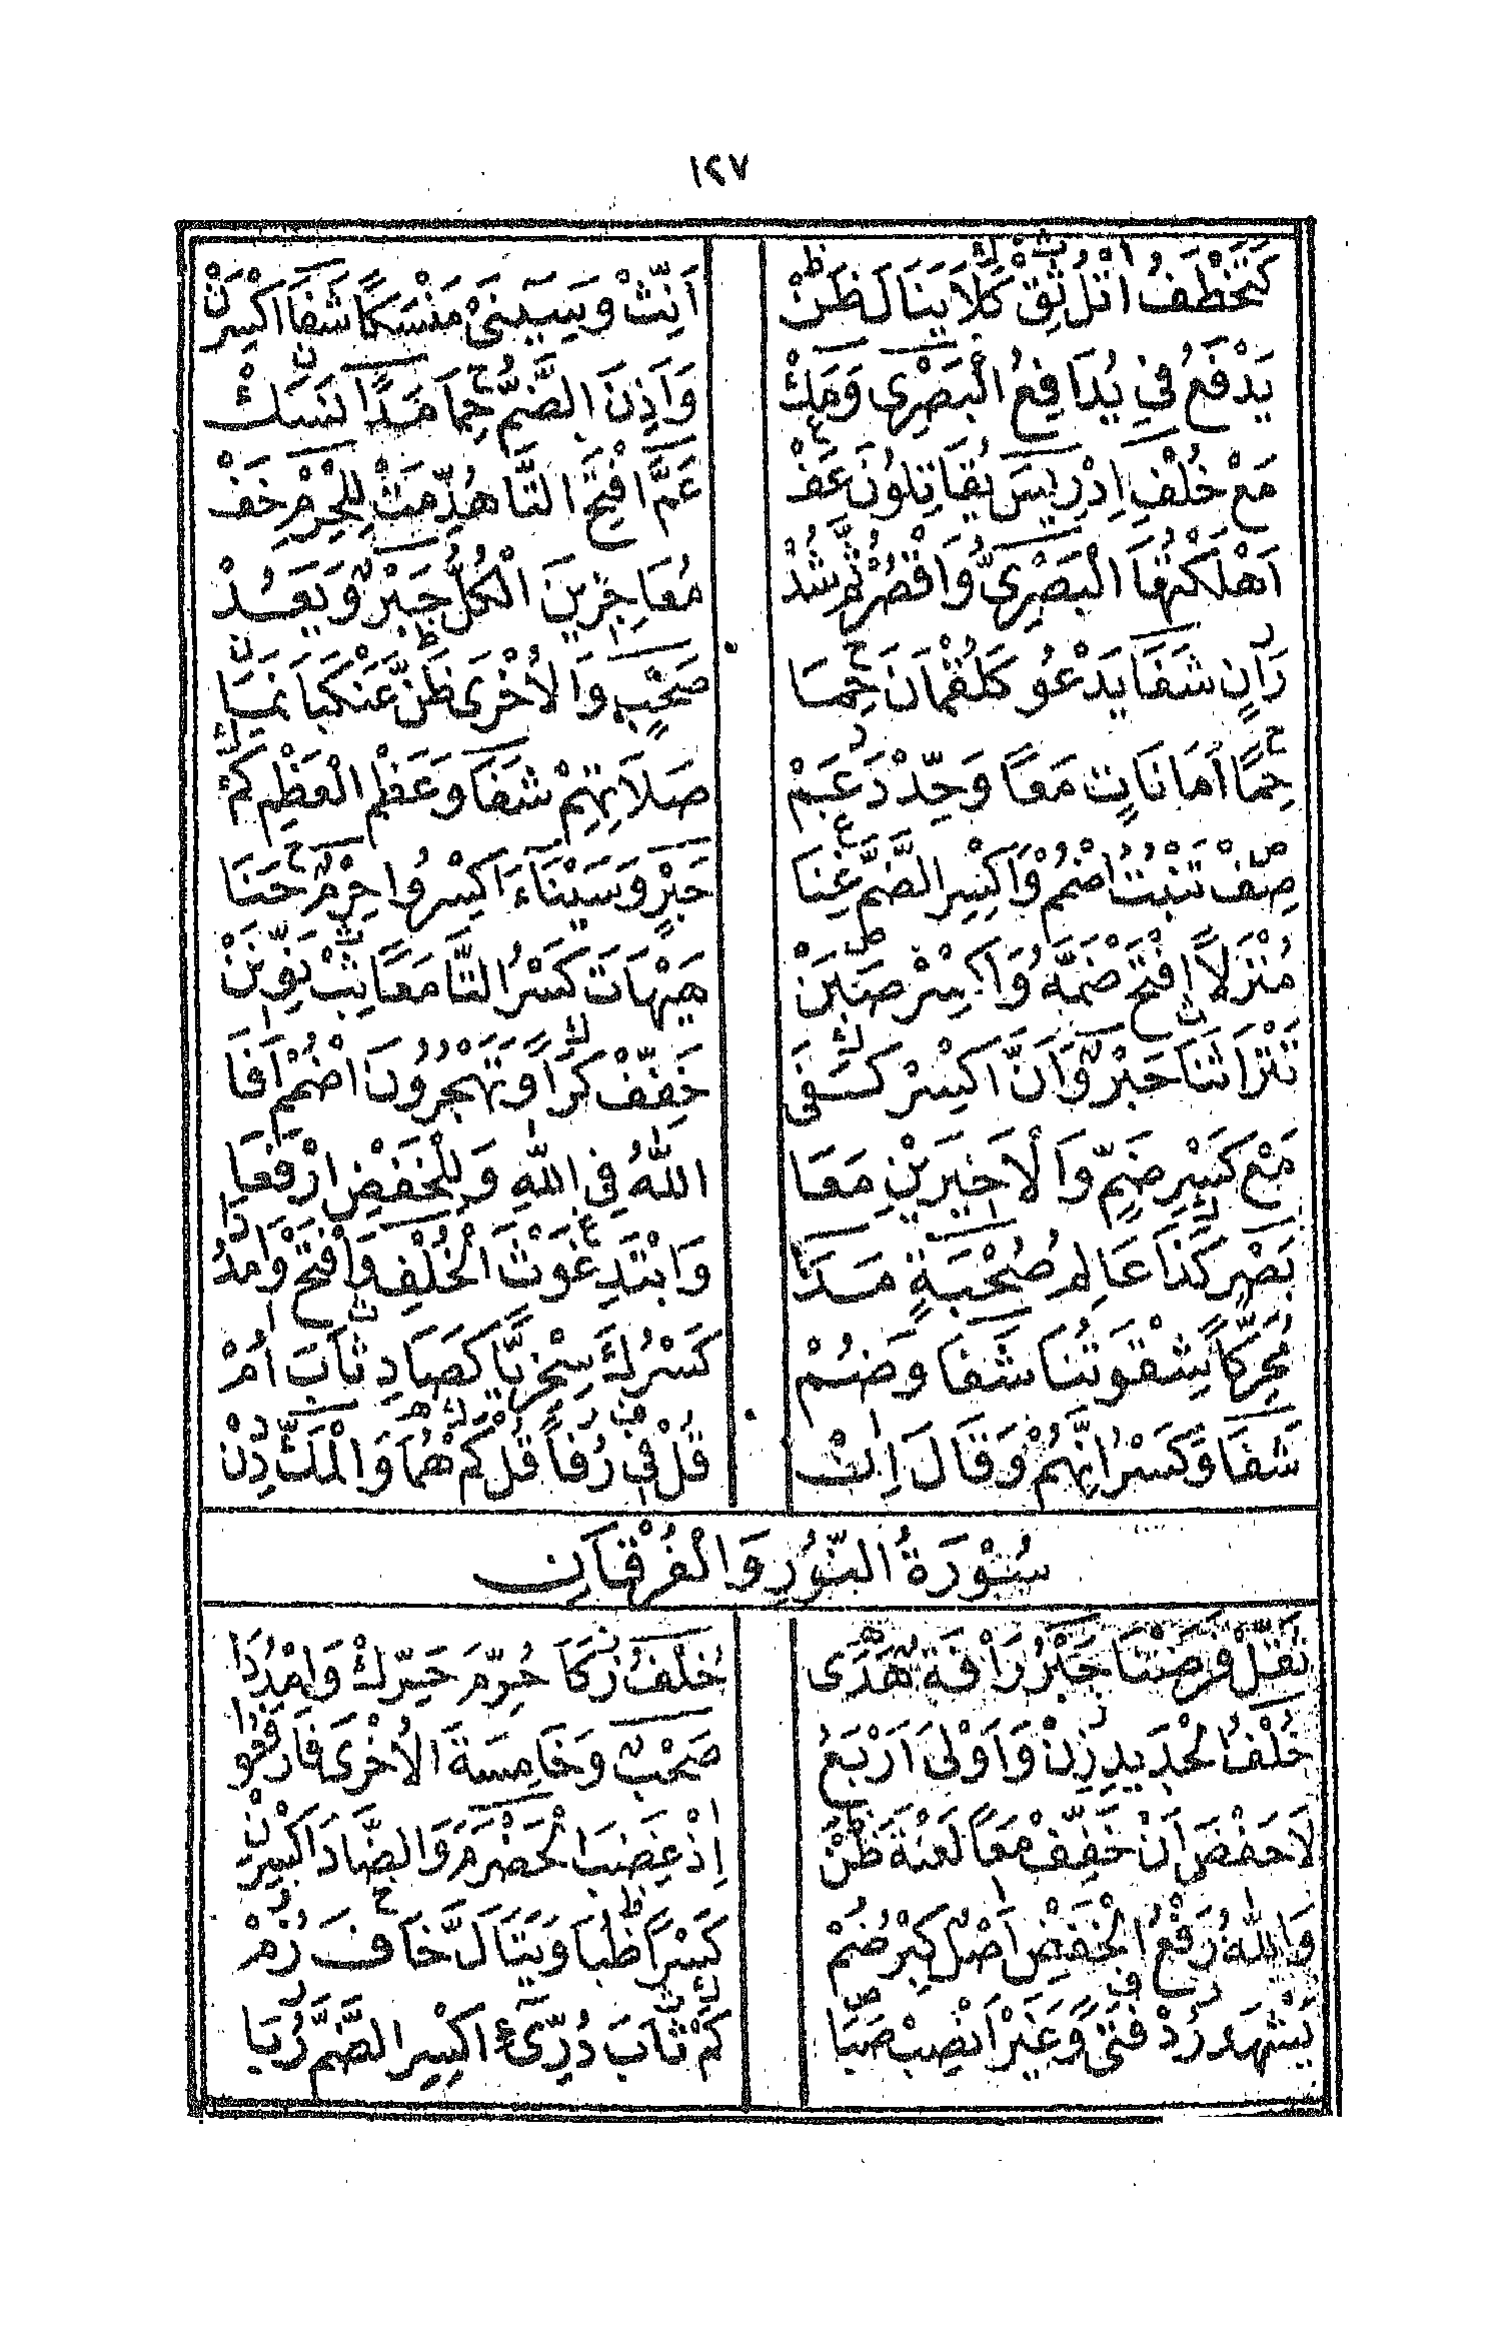 ١٢٧
كَتَخْطَفُ اتْلُ ثِقْ كَلَا يَنَالَ ظَنْ أَنِّثْ وَسِينَيْ مَنْسَكًا شَفَا اكْسِرَنْ
يَدْفَعُ فِي يُدَافِعُ الْبَصْرِي وَمَكْ وَأَذِنَ الضَّمُّ حِمَا مَدًّا نَسَكْ
مَعْ خُلْفِ إِدْرِيسَ يُقَاتِلُونَ عَفْ عَمَّ افْتَحِ التَّا هُدِّمَتْ لِلْحِرْمِ خَفْ
أَهْلَكْتُهَا الْبَصْرِيُّ وَاقْصُرْ ثُمَّ شُدْ مُعَاجِزِينَ الْكُلَّ حَبْرٌ وَيَعُدْ
دَانٍ شَفَا يَدْعُو كَلُقْمَانَ حِمَا صَحْبٍ وَالْأُخْرَى ظَنَّ عَنْكَبَا نَمَا
حِمًا أَمَانَاتِ مَعًا وَحِّدْ دَعَمْ صَلَاتِهِمْ شَفَا وَعَظْمَ الْعَظْمِ كَمْ
صِفْ تَنْبُتُ اضْمُمْ وَاكْسِرِ الضَّمَّ غِنَا حَبْرٍ وَسَيْنَاءَ اكْسِرُوا حِرْمٌ حَنَا
مُنْزَلًا افْتَحْ ضَمَّهُ وَاكْسِرْ صَبَنْ هَيْهَاتَ كَسْرُ التَّا مَعًا ثِبْ نَوِّنَنْ
تَتْرَا ثَنَا حَبْرٌ وَأَنَّ اكْسِرْ كَفَى خَفِّفْ كَرًا وَتَهْجُرُونَ اضْمُمْ أَفَا
مَعْ كَسْرِ ضَمٍّ وَالْأَخِيرَيْنِ مَعَا اللَّهُ فِي اللَّهِ وَلِلْخَفْضِ ارْفَعَا
بَصْرٍ كَذَا عَالِمِ صُحْبَةٍ مَدَا وَابْتَدِ غَوْثَ الْخُلْفِ وَافْتَحْ وَامْدُدَا
مُحَرِّكًا شِقْوَتُنَا شَفَا وَضُمْ كَسْرَكَ سِخْرِيًّا كَصَادِ ثَابَ أُمْ
شَفَا وَكَسْرُ إِنَّهُمْ وَقَالَ إِنْ قُلْ فِي رُفَا قُلْ كَمْ هُمَا وَالْمَكِّ دِنْ
سُوْرَةُ النُّوْرِ وَالْفُرْقَانِ
ثَقِّلْ فَرَضْنَا حَبْرُ رَأْفَةٌ هَدَى خُلْفٌ زَكَا حُرِّمَ حَرِّكْ وَامْدُدَا
خُلْفُ الْحَدِيدِ زِنْ وَأَوْلَى أَرْبَعُ صَحْبٌ وَخَامِسَةَ الْأُخْرَى فَارْفَعُو
لَا حَفْضَ أَنْ خَفِّفْ مَعًا لَعْنَةُ ظَنْ إِذْ غَضِبَ الْحَضْرَمِ وَالضَّادَ اكْسِرَنْ
وَاللَّهُ رَفْعُ الْخَفْضِ أَصْلٌ كِبْرَ ضُمْ كَسْرًا ظُبًا وَيَتَأَلَّ خَافَ ذُمْ
يَشْهَدُ رُدْ فَتًى وَغَيْرَ انْصِبْ صَبَا كَمْ ثَابَ دُرِّيٌّ اكْسِرِ الضَّمَّ رُبَا